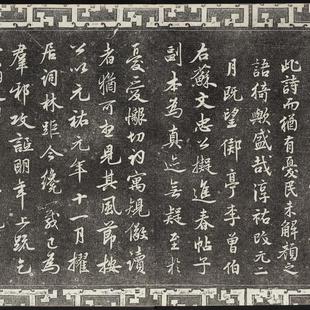 此詩而猶有憂民未解顏之
語猗歟盛哉淳祐改元二
月既望亭李曾伯
右蘇文忠公擬進春帖子
副本為真迹無疑至於
憂愛懇切詞寓規儆讀
者猶可想見其風節按
公以元祐元年十一月擢
居詞林距今纔已為
羣邪攻詆明年上疏乞